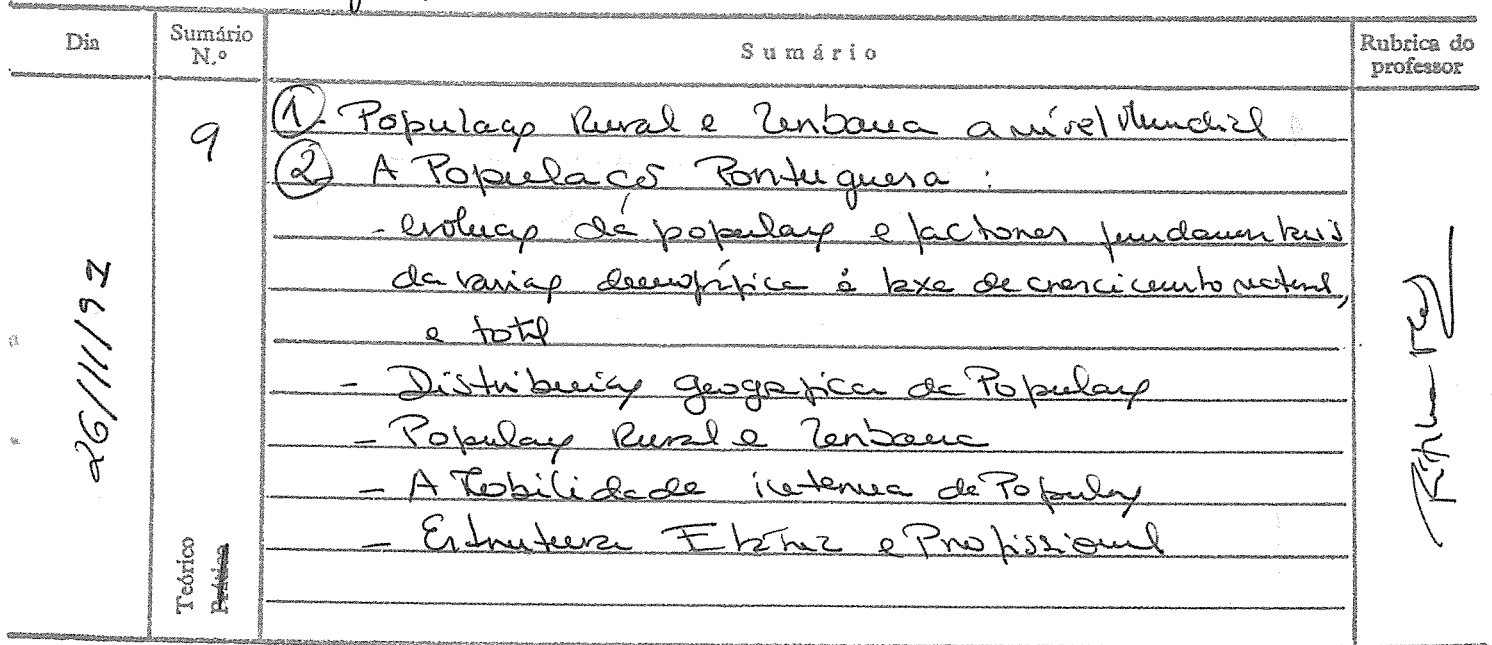 Dia
Sumário N.º
Sumário
Rubrica do professor
26/11/97
9
Teórico
Prático
① População Rural e Urbana a nível Mundial
② A População Portuguesa :
- evolução da população e factores fundamentais
da variação demográfica à taxa de crescimento natural,
e total
- Distribuição geográfica da População
- População Rural e Urbana
- A Mobilidade interna da População
- Estrutura Etária e Profissional